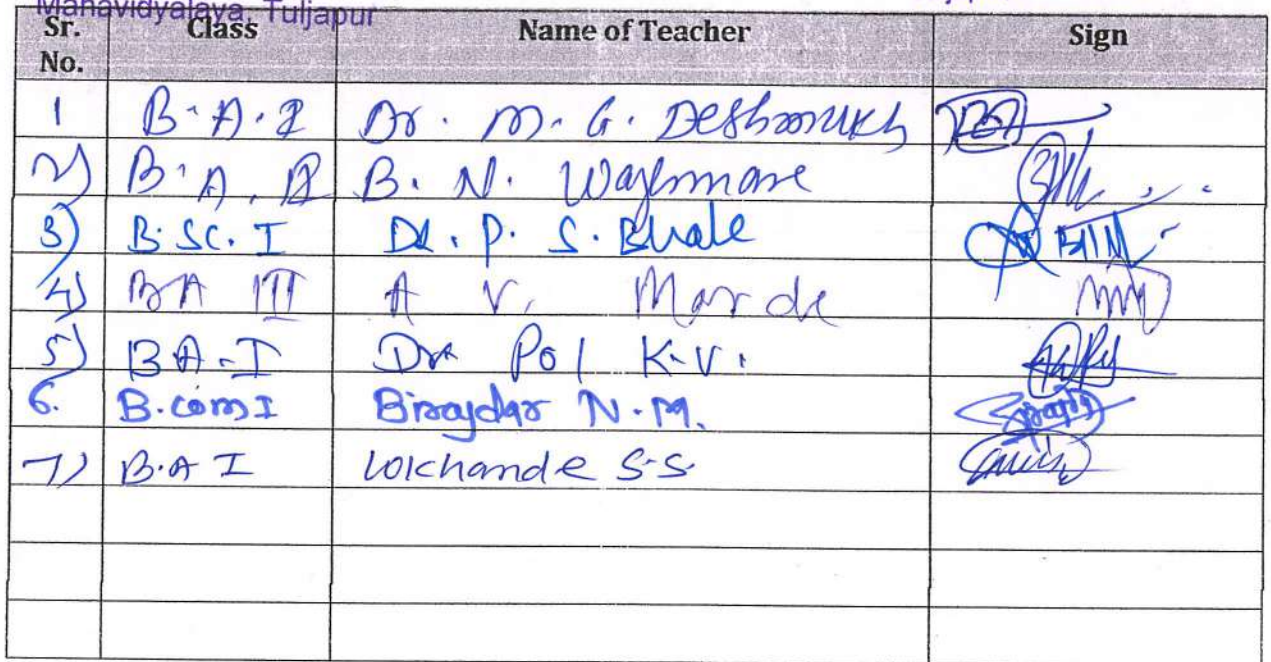 Mahavidyalaya, Tuljapur
Sr. No. Class Name of Teacher Sign
1 B.A.I Dr. M. G. Deshmukh
2) B.A. B. N. Waghmare
3) B.Sc. I Dr. P. S. Bhale
4) BA III A V. Marde
5) B A-I Dr Pol K.V.
6. B.com I Birajdar N.M.
7) B.A I Lokhande S.S.